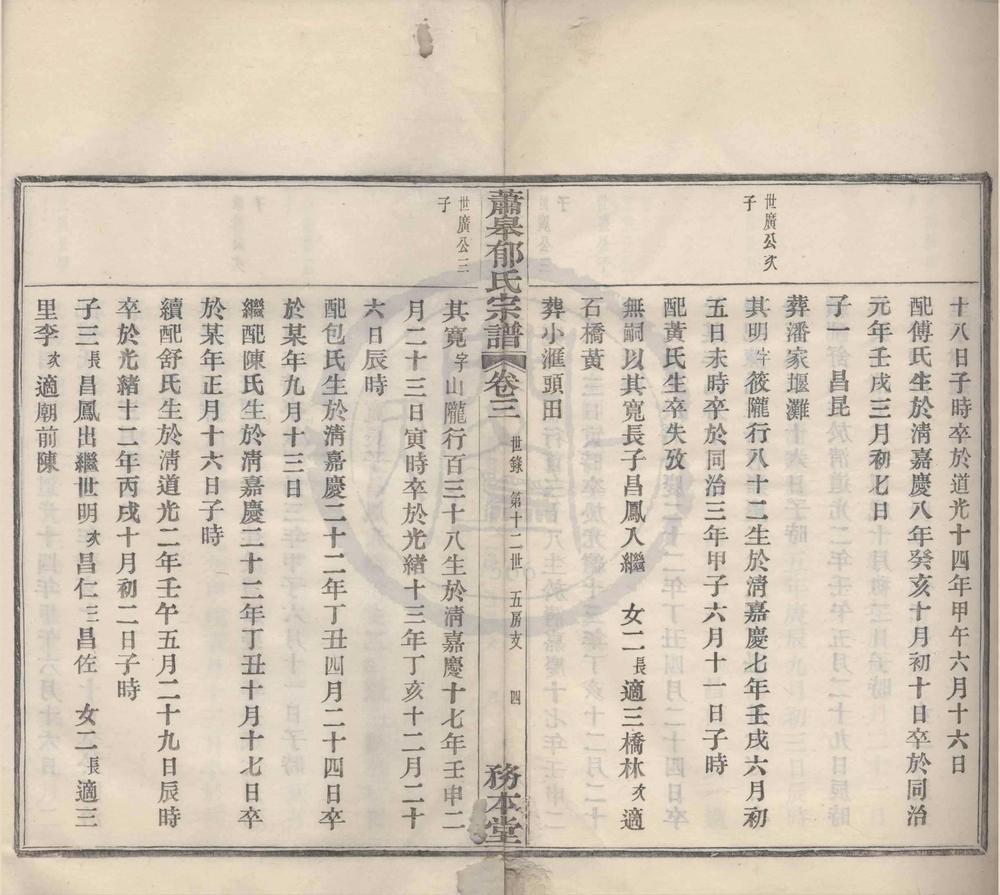 十八日子時卒於道光十四年甲午六月十六日
配傅氏生於淸嘉慶八年癸亥十月初十日卒於同治
元年壬戌三月初七日
子一昌昆
葬潘家堰灘
世廣公次
子
其明字筱隴行八十二生於淸嘉慶七年壬戌六月初
五日未時卒於同治三年甲子六月十一日子時
配黃氏生卒失攷
無嗣以其寬長子昌鳳入繼 女二長適三橋林次適
石橋黃
葬小滙頭田
蕭皋郁氏宗譜 卷三 世錄 第十二世 五房支 四 務本堂
世廣公三
子
其寬字山隴行百三十八生於淸嘉慶十七年壬申二
月二十三日寅時卒於光緒十三年丁亥十二月二十
六日辰時
配包氏生於淸嘉慶二十二年丁丑四月二十四日卒
於某年九月十三日
繼配陳氏生於淸嘉慶二十二年丁丑十月十七日卒
於某年正月十六日子時
續配舒氏生於淸道光二年壬午五月二十九日辰時
卒於光緒十二年丙戌十月初二日子時
子三長昌鳳出繼世明次昌仁三昌佐 女二長適三
里李次適廟前陳